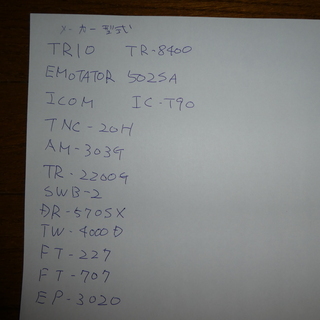 メーカー 型式
TRIO TR-8400
EMOTATOR 502SA
ICOM IC-T90
TNC-20H
AM-303G
TR-2200G
SWB-2
DR-570SX
TW-4000D
FT-227
FT-707
EP-3020